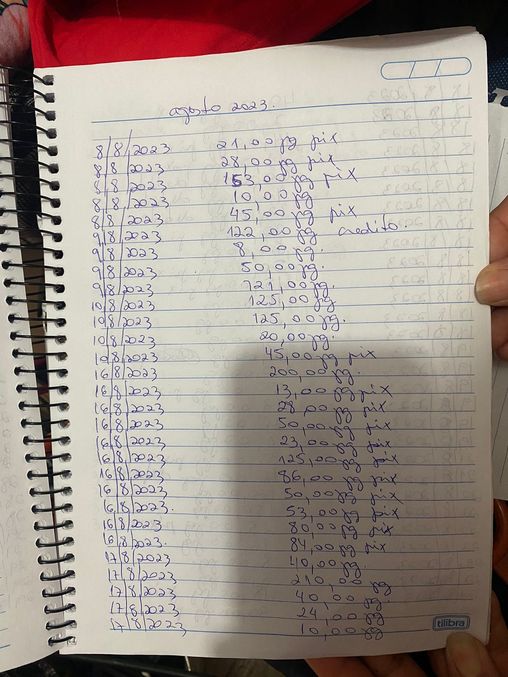 agosto 2023.
8/8/2023 21,00 pg pix
8/8/2023 28,00 pg pix
8/8/2023 153,00 pg pix
8/8/2023 10,00 pg
8/8/2023 45,00 pg pix
9/8/2023 122,00 pg credito.
9/8/2023 8,00 pg.
9/8/2023 50,00 pg.
9/8/2023 721,00 pg.
10/8/2023 125,00 pg
10/8/2023 125,00 pg.
10/8/2023 20,00 pg.
10/8/2023 45,00 pg pix
16/8/2023 200,00 pg.
16/8/2023 13,00 pg pix
16/8/2023 28,00 pg pix
16/8/2023 50,00 pg pix
16/8/2023 23,00 pg pix
16/8/2023 125,00 pg pix
16/8/2023 86,00 pg pix
16/8/2023 50,00 pg pix
16/8/2023. 53,00 pg pix
16/8/2023 80,00 pg pix
16/8/2023. 84,00 pg pix
17/8/2023 40,00 pg.
17/8/2023 210,00 pg
17/8/2023 40,00 pg
17/8/2023 24,00 pg
17/8/2023 10,00 pg
tilibra